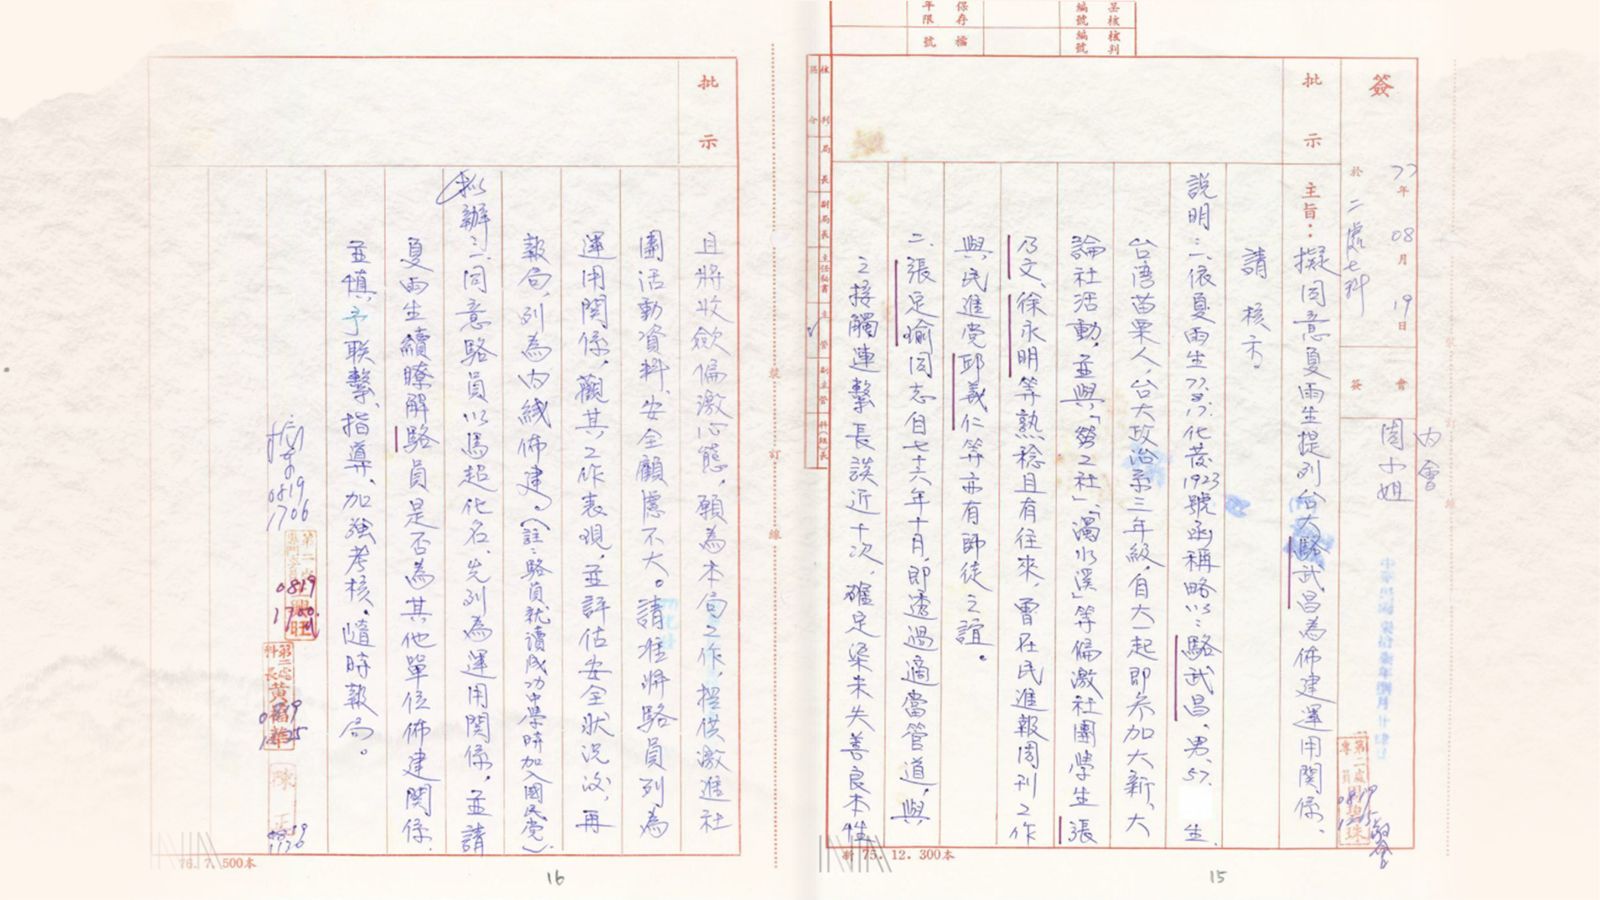 簽
77年08月19日
於二處七科
會
簽
內會
周小姐
批示
主旨：擬同意夏雨生提列台大駱武昌為佈建運用關係，
請核示。
說明：一、依夏雨生77.8.17.化荗1923號函稱略以：駱武昌，男，57. 生
台湾苗栗人，台大政治系三年級，自大一起即参加大新、大
論社活動，並與「勞工社」、「濁水溪」等偏激社團學生張
乃文、徐永明等熟稔且有往來，曾在民進報周刊工作
與民進党邱義仁等亦有師徒之誼。
二、張定瑜同志自七十六年十月，即透過適當管道，與
之接觸連繫長談近十次，確定渠未失善良本性
保存年限
檔號
編號
核判
局長
副局長
主任秘書
主管
副主管
科(組)長
裝
訂
線
新 75. 12. 300本
15
批示
且將收歛偏激心態，願為本局工作，提供激進社
團活動資料，安全顧慮不大。請准將駱員列為
運用関係，觀其工作表現，並評估安全狀況後，再
報局，列為內綫佈建。（註：駱員就讀成功中學時加入國民党）。
擬辦：一、同意駱員以馬超化名，先列為運用関係，並請
夏雨生續瞭解駱員是否為其他單位佈建関係，
並慎予联繫、指導、加強考核，隨時報局。
0819
1706
第二處
0819
1700
第二處
科長黃
0819
陳
0819
1730
76. 7. 500本
16